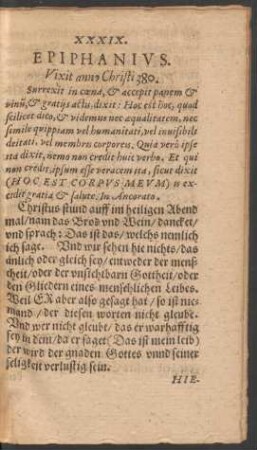 XXXIX.
EPIPHANIVS.
Vixit anno Christi 380.
Surrexit in cœna, & accepit panem &
vinũ, & gratijs actis, dixit: Hoc est hoc, quod
scilicet dico, & videmus nec æqualitatem, nec
similẽ quippiam vel humanitati, vel inuisibili
deitati, vel membris corporeis. Quia verò ipse
ita dixit, nemo non credit huic verbo. Et qui
non credit, ipsum esse veracem ita, sicut dixit
(HOC EST CORPVS MEVM) is ex-
cidit gratia & salute. In Ancorato.
Christus stund auff im heiligen Abend
mal/ nam das Brod vnd Wein/ dancket/
vnd sprach: Das ist das/ welchs nemlich
ich sage. Vnd wir sehen hie nichts/ das
änlich oder gleich sey/ entweder der mensch
heit/ oder der vnsichtbarn Gottheit/ oder
den Gliedern eines menschlichen Leibes.
Weil ER aber also gesagt hat/ so ist nie-
mand/ der diesen worten nicht gleube.
Vnd wer nicht gleubt/ das er warhafftig
sey in dem/ da er saget (Das ist mein leib)
der wird der gnaden Gottes vnnd seiner
seligkeit verlustig sein.
HIE-